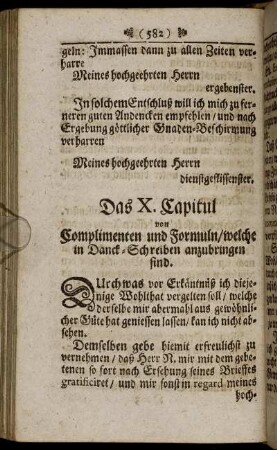 (582)
geln: Immassen dann zu allen Zeiten ver-
harre
Meines hochgeehrten Herrn
ergebenster.
In solchem Entschluß will ich mich zu fer-
neren guten Andencken empfehlen / und nach
Ergebung göttlicher Gnaden-Beschirmung
verharren
Meines hochgeehrten Herrn
dienstgeflissenster.
Das X. Capitul
von
Complimenten und Formuln / welche
in Danck-Schreiben anzubringen
sind.
Durch was vor Erkäntnüß ich dieje-
nige Wohlthat vergelten soll / welche
derselbe mir abermahl aus gewöhnli-
cher Güte hat geniessen lassen / kan ich nicht ab-
sehen.
Demselben gebe hiemit erfreulichst zu
vernehmen / daß Herr N. mir mit dem gebe-
tenen so fort nach Ersehung seines Brieffes
gratificiret / und mir sonst in regard meines
hoch-